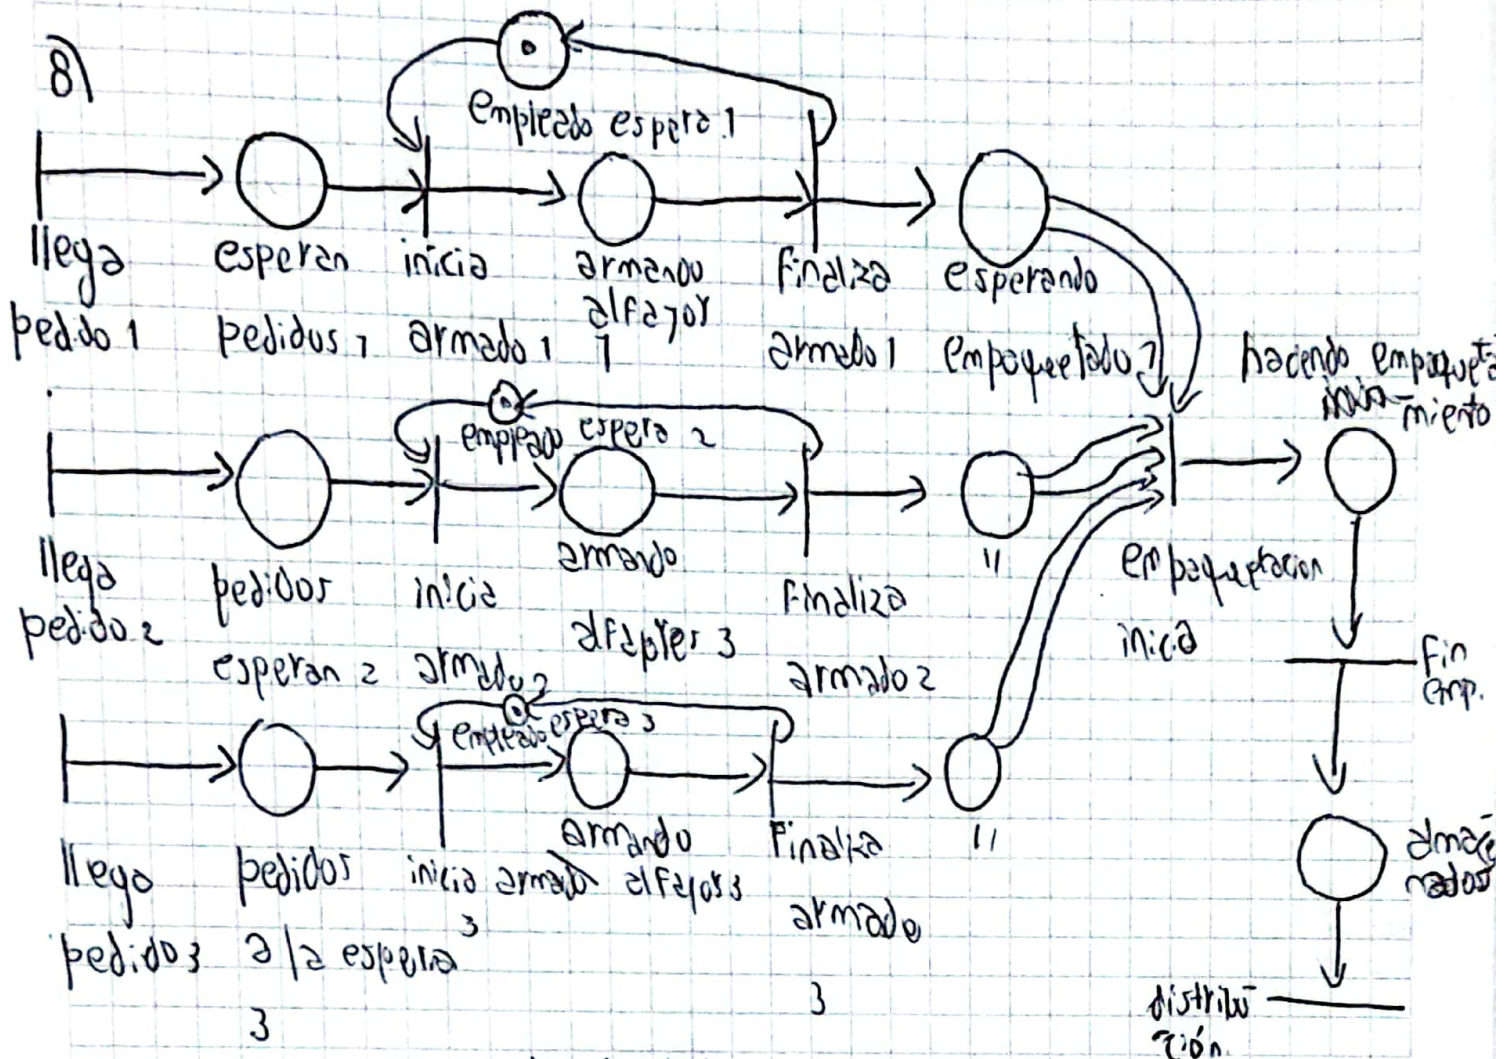 8)
empleado espera 1
llega
pedido 1
esperan
pedidos 1
inicia
armado 1
armando
alfajor
1
finaliza
armado 1
esperando
empaquetado 1
hacendo empaqueta
miento
empleado espera 2
llega
pedido 2
pedidos
esperan 2
inicia
armado 2
armando
alfajores 3
finaliza
armado 2
"
empaquetacion
inicia
fin
emp.
empleado espera 3
llega
pedido 3
pedidos
a la espera
3
inicia armado
3
armando
alfajor 3
finaliza
armado
3
"
almace
nados
distribu
ción